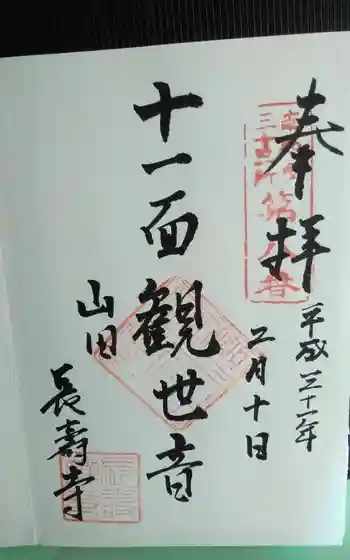 奉拝
平成三十一年
二月十日
十一面観世音
山田
長壽寺